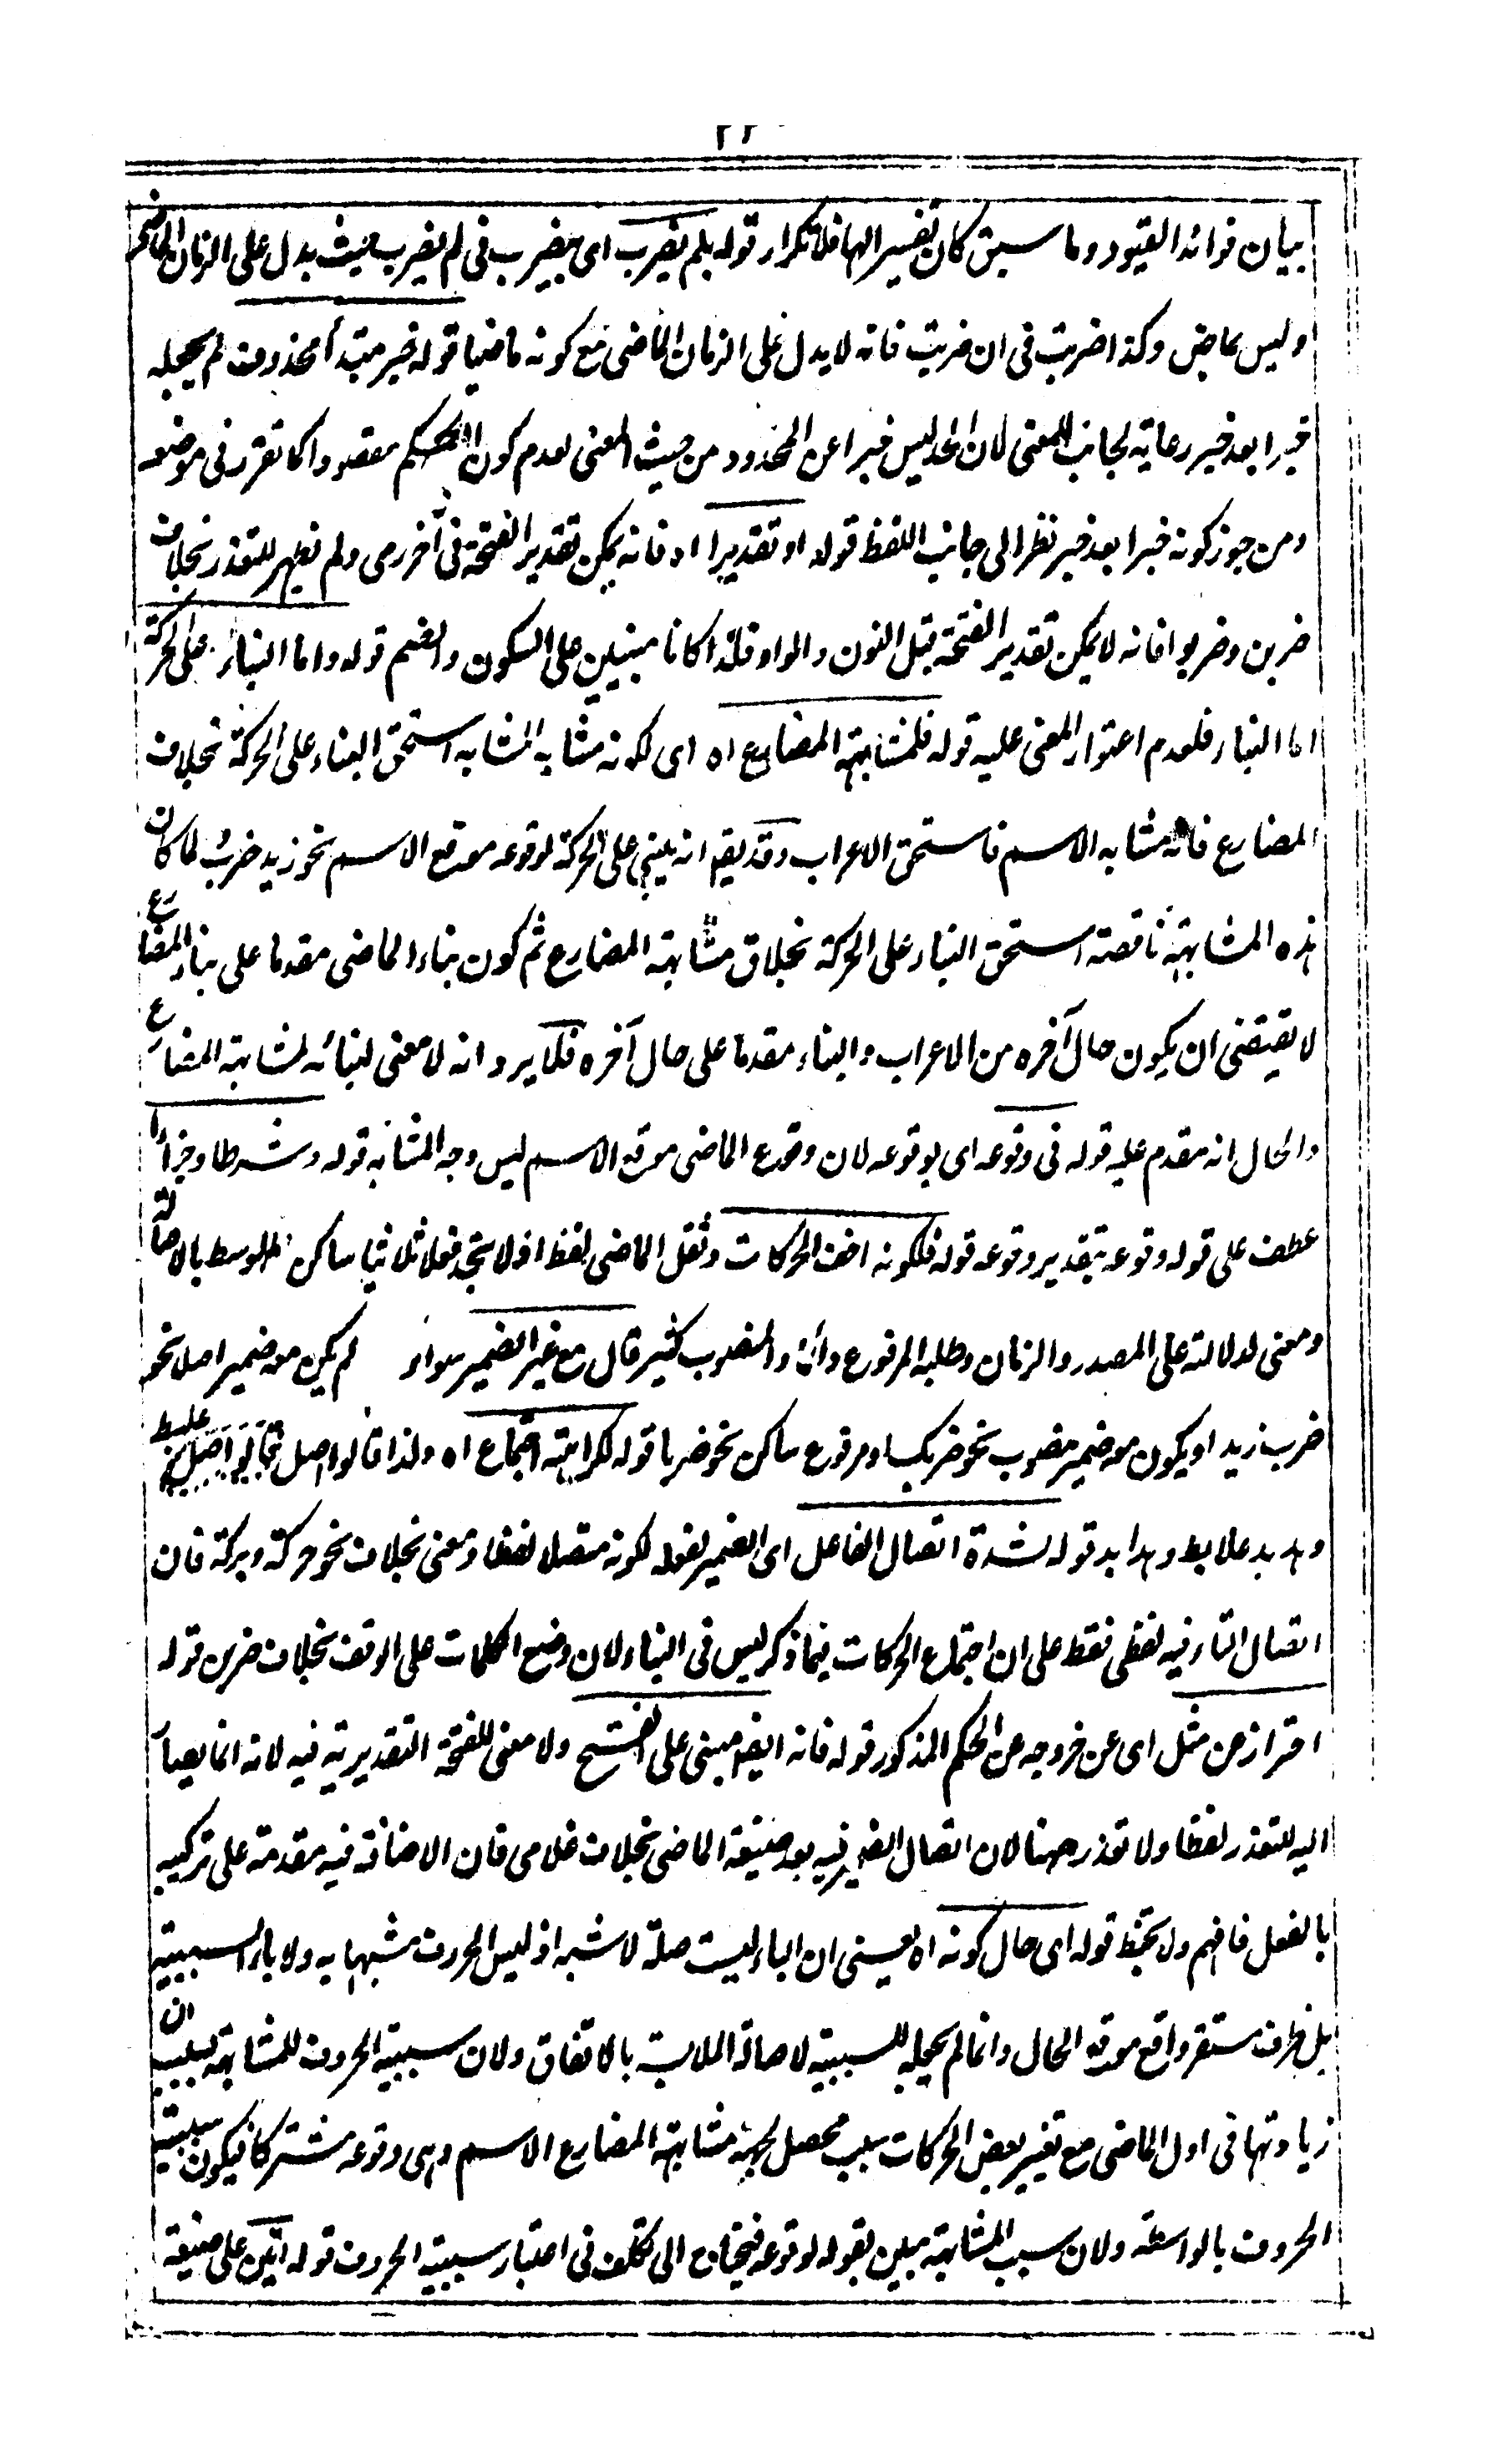 بيان فوائد القيود وما سبق كان تفسيرا لها فلا تكرار قوله بلم يضرب اى بيضرب فى لم يضرب حيث يدل على الزمان الماضى
وليس بماض وكذا ضربت فى ان ضربت فانه لا يدل على الزمان الماضى مع كونه ماضيا قوله خبر مبتدأ محذوف لم يجعله
خبرا بعد خبر رعاية لجانب المعنى لان الحد ليس خبرا عن المحدود من حيث المعنى لعدم كون الحكم مقصودا كما تقرر فى موضعه
ومن جوز كونه خبرا بعد خبر نظر الى جانب اللفظ قوله او تقديرا اه فانه يمكن تقدير الفتحة فى آخر رمى ولم تظهر للتعذر بخلاف
ضربن وضربوا فانه لا يمكن تقدير الفتحة قبل النون والواو فلذا كانا مبنيين على السكون والضم قوله واما البناء على الحركة
اما البناء فلعدم اعتوار المعنى عليه قوله فلمشابهة المضارع اه اى لكونه مشابه المشابه استحق البناء على الحركة بخلاف
المضارع فانه مشابه الاسم فاستحق الاعراب وقد يقم انه يبنى على الحركة لوقوعه موقع الاسم نحو زيد ضرب لما كان
هذه المشابهة ناقصة استحق البناء على الحركة بخلاف مشابهة المضارع ثم كون بناء الماضى مقدما على بناء المضارع
لا يقتضى ان يكون حال آخره من الاعراب والبناء مقدما على حال آخره فلا يرد انه لا معنى لبنائه لمشابهة المضارع
والحال انه مقدم عليه قوله فى وقوعه اى بوقوعه لان وقوع الماضى موقع الاسم ليس وجه المشابه قوله وشرطا وجزاءا
عطف على قوله وقوعه بتقدير وقوعه قوله فلكونه اخف الحركات وثقل الماضى لفظا اذ لا تجد فعلا ثلاثيا ساكن الوسط بالاصالة
ومعنى لدلالته على المصدر والزمان وطلبه المرفوع دائما والمنصوب كثير قال مع غير الضمير سواء لم يكن معه ضمير اصلا نحو
ضرب زيد او يكون معه ضمير منصوب نحو ضربك او مرفوع ساكن نحو ضربا قوله لكراهة اجتماع اه ولذا قالوا اصل علبط
وهدبد علابط وهدابد قوله لشدة اتصال الفاعل اى الضمير لفعله لكونه متصلا لفظا ومعنى بخلاف نحو حركة وبركة فان
اتصال التاء فيه لفظى فقط على ان اجتماع الحركات فيما ذكر ليس فى البناء لان وضع الكلمات على الوقف بخلاف ضربن قوله
احتراز عن مثل اى عن خروجه عن الحكم المذكور قوله فانه ايضا مبنى على الفتح ولا معنى للفتحة التقديرية فيه لانه انما يصار
اليه للتعذر لفظا ولا تعذر ههنا لان اتصال الضمير فيه بعد صيغة الماضى بخلاف غلامى فان الاضافة فيه مقدمة على تركيبه
بالفعل فافهم ولا تخبط قوله اى حال كونه اه يعنى ان الباء ليست صلة لاشبه اذ ليس الحروف مشبها به ولا باء السببية
بل ظرف مستقر واقع موقع الحال وانما لم يجعله للسببية لاصالة الملابسة بالاتفاق ولان سببية الحروف للمشابهة بسبب ان
زيادتها فى اول الماضى مع تغيير بعض الحركات سبب محصل لجهة مشابهة المضارع الاسم وهى وقوعه مشتركا فيكون سببية
الحروف بالواسطة ولان سبب المشابهة مبين بقوله لوقوعه فيحتاج الى تكلف فى اعتبار سببية الحروف قوله اتين على صيغة